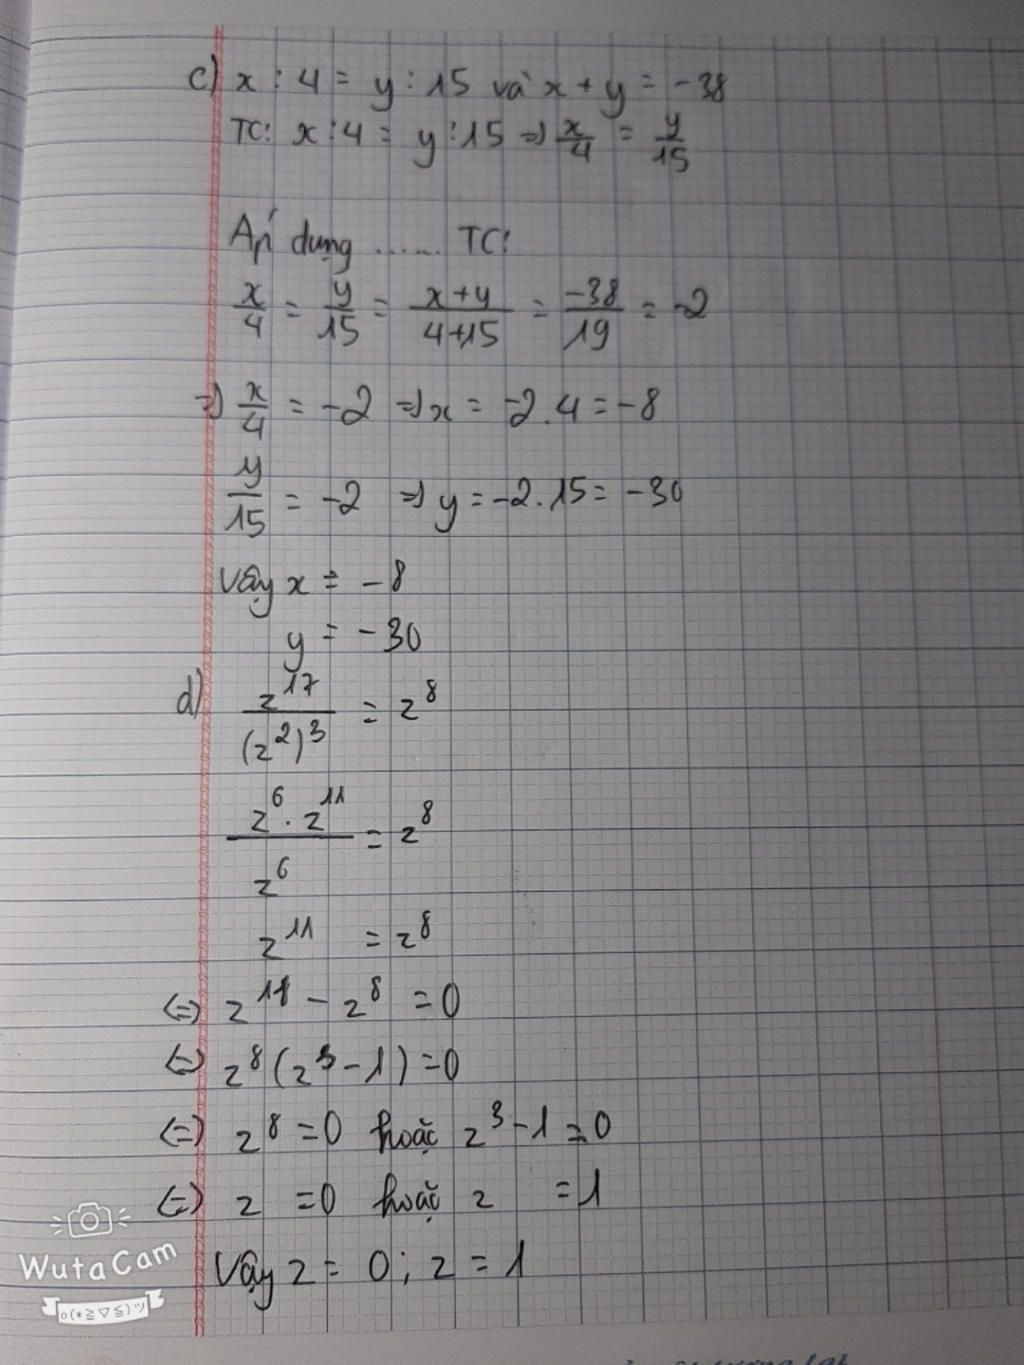 c) x : 4 = y : 15 và x + y = -38
TC: x : 4 = y : 15 => x/4 = y/15
Áp dụng ...... TC:
x/4 = y/15 = (x+y)/(4+15) = -38/19 = -2
=> x/4 = -2 => x = -2.4 = -8
y/15 = -2 => y = -2.15 = -30
Vậy x = -8
y = -30
d) z^17/(z^2)^3 = z^8
(z^6 . z^11)/z^6 = z^8
z^11 = z^8
(=) z^11 - z^8 = 0
(=) z^8 (z^3 - 1) = 0
(=) z^8 = 0 hoặc z^3 - 1 = 0
(=) z = 0 hoặc z = 1
Vậy z = 0 ; z = 1
WutaCam